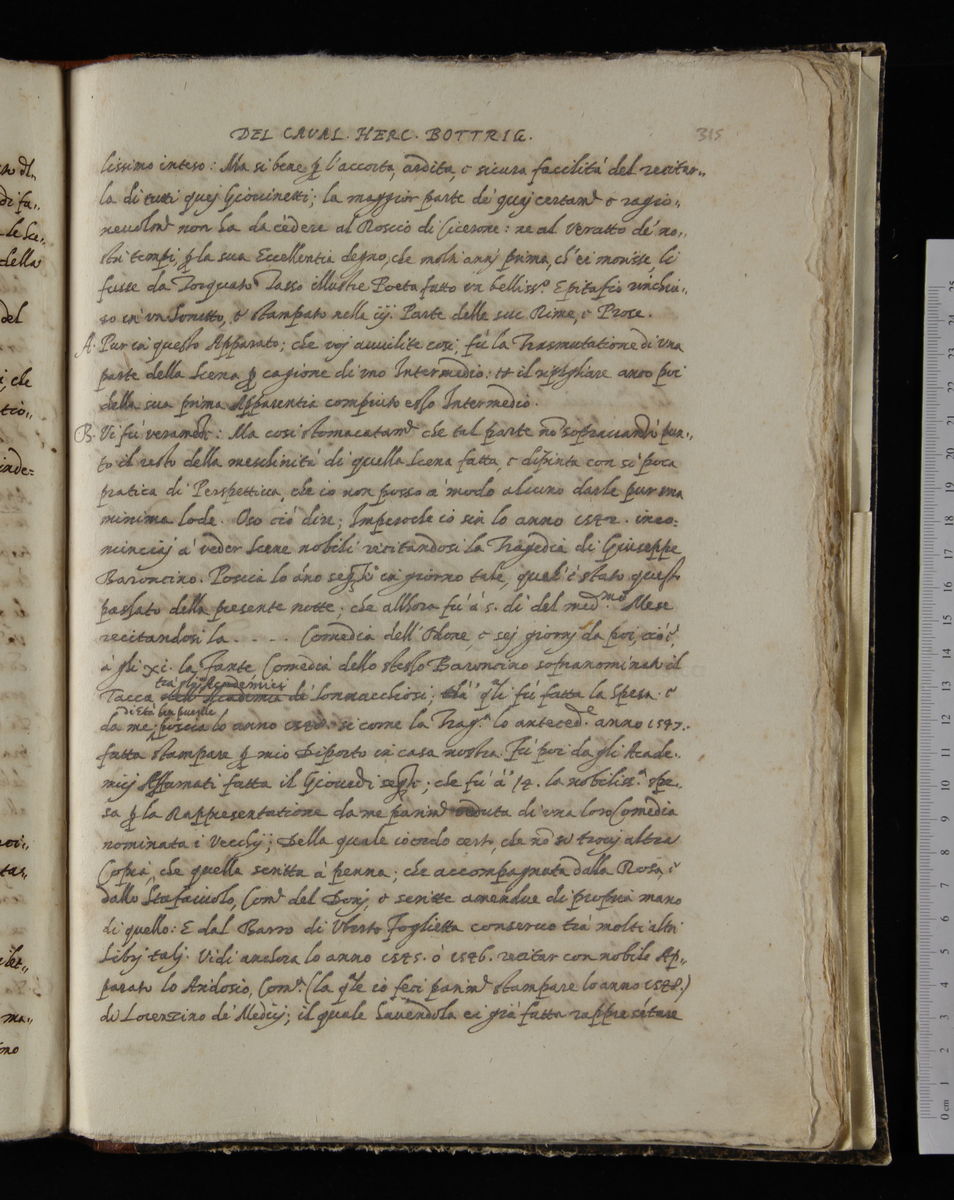 DEL CAVAL. HERC. BOTTRIG. 315
lissimo inteso: Ma si bene ꝑ l'accorta, ardita, e sicura facilità del recitar-
la di tutti quej Giovinetti; la maggior parte de' quaj certam.te e ragio-
nevolm.te non ha da cedere al Roscio di Cicerone: ne al Veratto de' no-
stri tempi, ꝑ la sua Eccellentia degno, che molti annj prima, ch' ei morisse li
fusse da Torquato Tasso illustre Poeta fatto un belliss.o Epitafio rinchiu-
so in un Sonetto, et stampato nelle iij. Parte delle sue Rime, e Prose.
A. Pur in questo Apparato; che voj avvilite cosi, fù la Trasmutatione di una
parte della Scena ꝑ cagione di uno Intermedio: et il ripigliare anco poi
della sua prima Apparentia compiuto esso Intermedio.
B. Vi fù veramente: Ma cosi stomacatam.te che tal parte nō sopravanzò pun-
to il resto della meschinità di quella Scena fatta, e dipinta con sì poca
pratica di Perspettiva, che io non posso à modo alcuno darle pur una
minima lode. Oso ciò dire; Imperoche io sin lo anno 1542. inco-
minciaj à veder Scene nobili recitandosi la Tragedia di Giuseppe
Baroncino. Poscia lo āno seg.te in giorno tale, qual' è stato questo
passato della presente notte; che allhora fù à 5. dì del med.mo Mese
recitandosi la . . . . Comedia dell' Odone, e sej giornj da poi, cioè
à gli xi. la Fante Comedia dello stesso Baroncino sopranominato il
tra gli Academici
Tacca de' Sonnacchiosi; q.li fù fatta la Spesa. e
di Età
da me, poscia lo anno si come la Trag.a lo anteced.e anno 1547.
fatta stampare ꝑ mio Diporto in casa nostra. Fù poi da gli Acade-
mici Affamati fatta il Giovedì seg.te; che fù à 14. la nobiliss.a spe-
sa ꝑ la Rappresentatione da me parim.te veduta di una loro Comedia
nominata i Vecchij; Della quale io credo certo, che nō si trovj altra
Copia, che quella scritta à penna; che accompagnata dalla Rosa, e
dallo Stufaivolo, Com.e del Donj e scritte amendue di propria mano
di quello: E dal Barro di Uberto Foglietta conservo trà molti altri
Librj talj. Vidi ancora lo anno 1545. ò 1546. recitar con nobile Ap-
parato lo Aridosio, Com.a (la q.le io feci parim.te stampare lo anno 1548.)
di Lorenzino de' Medicj; il quale havendola ei già fatta rappresētare